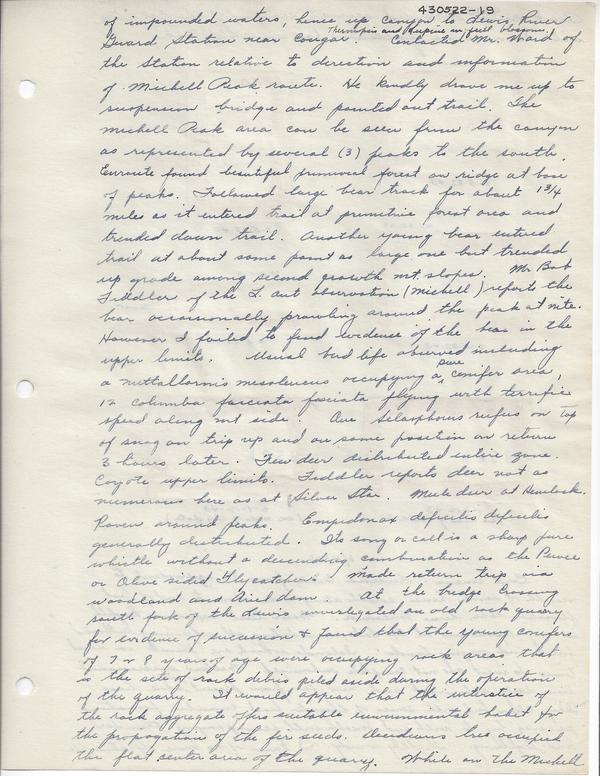 430522-19
of impounded waters, hence up canyon to Lewis River
Thermopsis and Lupine in full blossom.
Guard Station near Cougar. Contacted Mr. Ward of
the Station relative to direction and information
of Michell Peak route. He kindly drove me up to
suspension bridge and pointed out trail. The
Michell Peak area can be seen from the canyon
as represented by several (3) peaks to the south.
Enroute found beautiful primeval forest on ridge at base
of peaks. Followed large bear track for about 1 3/4
miles as it entered trail at primitive forest area and
trended down trail. Another young bear entered
trail at about same point as large one but trended
up grade among second growth mt. slopes. Mr Bob
Fiddler of the observation (Michell) reports the
bear occasionally prowling around the peak at nite.
However I failed to find evidence of the bear in the
upper limits. Usual bird life observed including
a nuttallornis mesoleucus occupying a pure conifer area,
12 columba fasciata fasciata flying with terrific
speed along mt side. One selasphorus rufus on top
of snag on trip up and on same position on return
3 hours later. Few deer distributed entire zone.
Coyote upper limits. Fiddler reports deer not as
numerous here as at Silver Star. Mule deer at Hemlock.
Raven around peaks. Empidonax dificilis dificilis
generally distributed. Its song or call is a sharp pure
whistle without a descending combination as the Pewee
or Olive sided Flycatcher. Made return trip via
woodland and Ariel dam. At the bridge crossing
south fork of the Lewis investegated an old rock quary
for evidence of succession & found that the young conifers
of 7 or 8 years of age were occupying rock areas that
is the site of rock debris piled aside during the operation
of the quarry. It would appear that the interstice of
the rock aggregate offers suitable environmental habit for
the propogation of the fir seeds. Deciduous has occupied
the flat center area of the quarry. While on the Michell